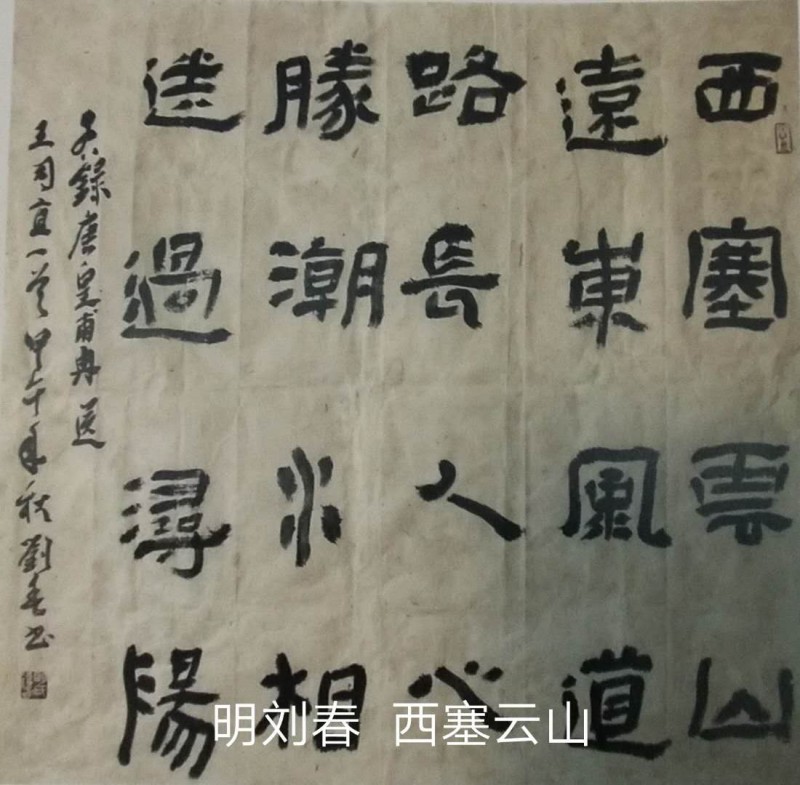 西塞雲山
遠東風道
路長人心
勝潮水相
送過潯陽
右錄唐皇甫冉送
王司直一首甲午年秋劉春书
明刘春 西塞云山